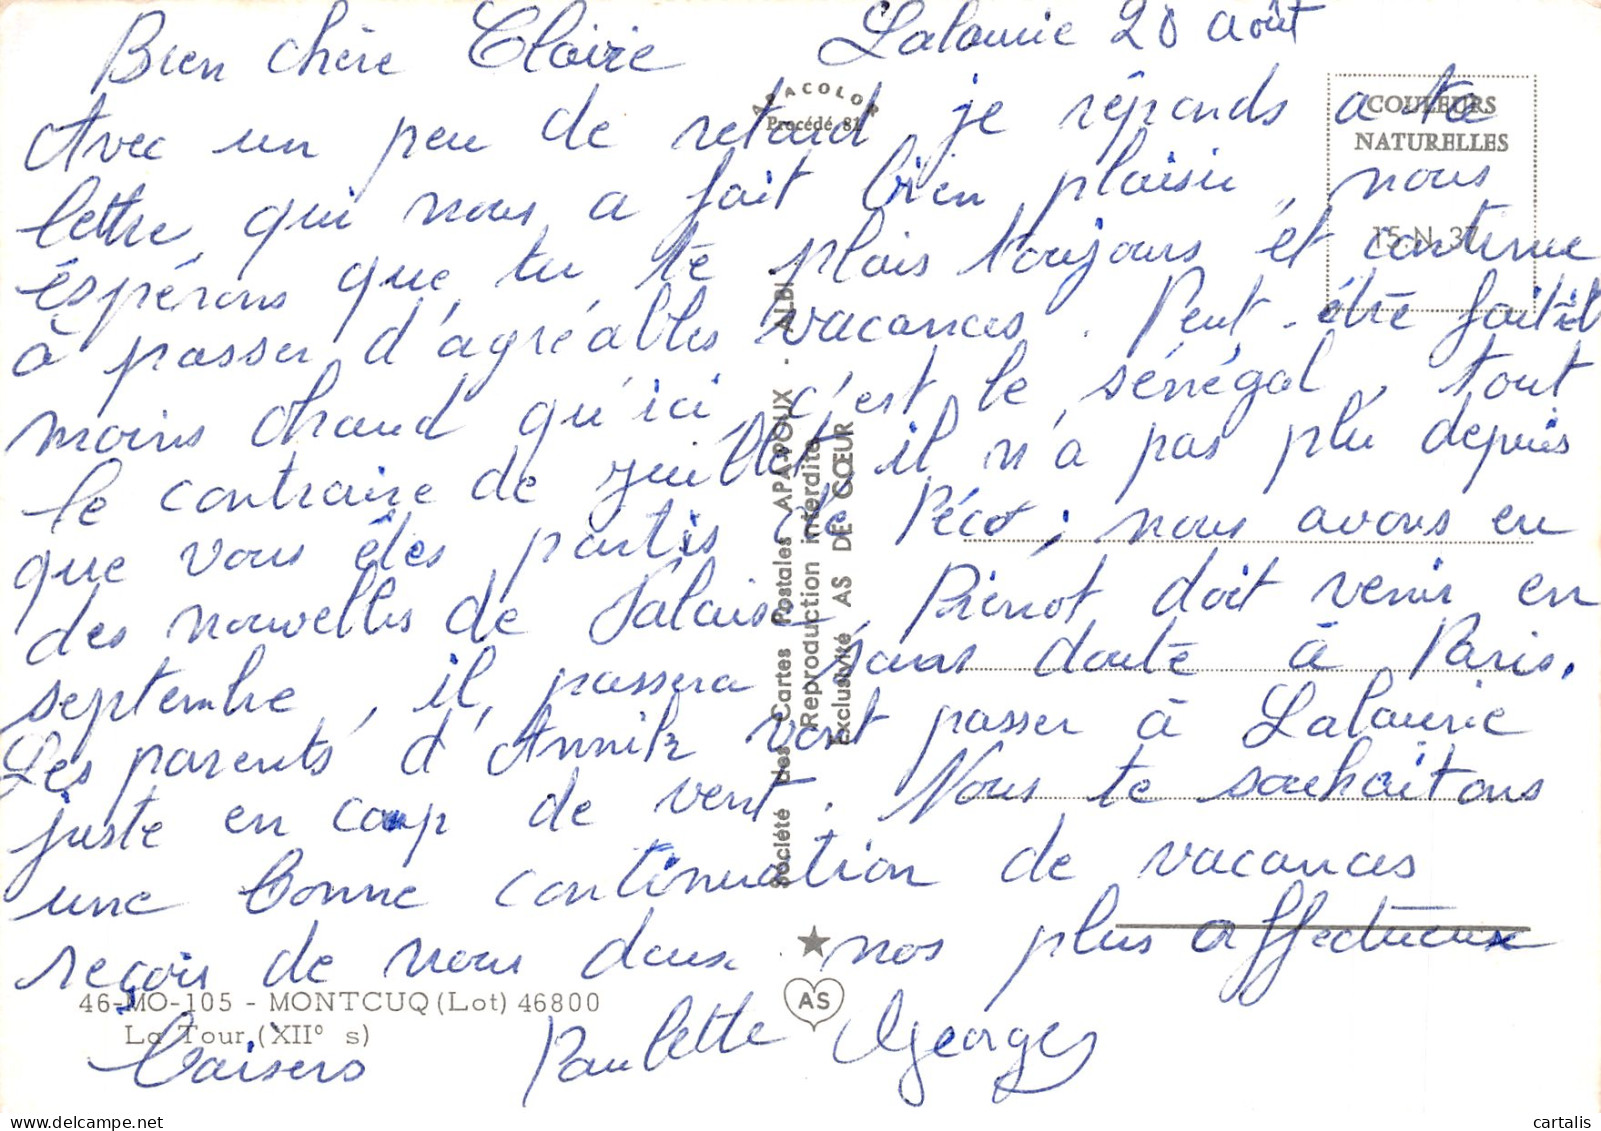 Bien chère Claire Lalaurie 20 août
Avec un peu de retard je réponds a ta
lettre qui nous a fait bien plaisir, nous
éspérons que tu te plais toujours et continue
à passer d'agréables vacances. Peut-être fait-il
moins chaud qu'ici, c'est le sénégal, tout
le contraire de juillet, il n'a pas plu depuis
que vous êtes partis de ; nous avons eu
des nouvelles de Pierrot doit venir en
septembre, il passera sans doute à Paris.
Les parents d'Annik vont passer à Lalaurie
juste en coup de vent. Nous te souhaitons
une bonne continuation de vacances
reçois de nous deux nos plus affectueux
baisers Paulette Georges
APACOLOR
Procédé 81
COULEURS
NATURELLES
15-N-37
Société des Cartes Postales APA-POUX - ALBI
Reproduction interdite
Exclusivité AS DE CŒUR
AS
46-MO-105 - MONTCUQ (Lot) 46800
La Tour (XII° s)
cartalis delcampe.net